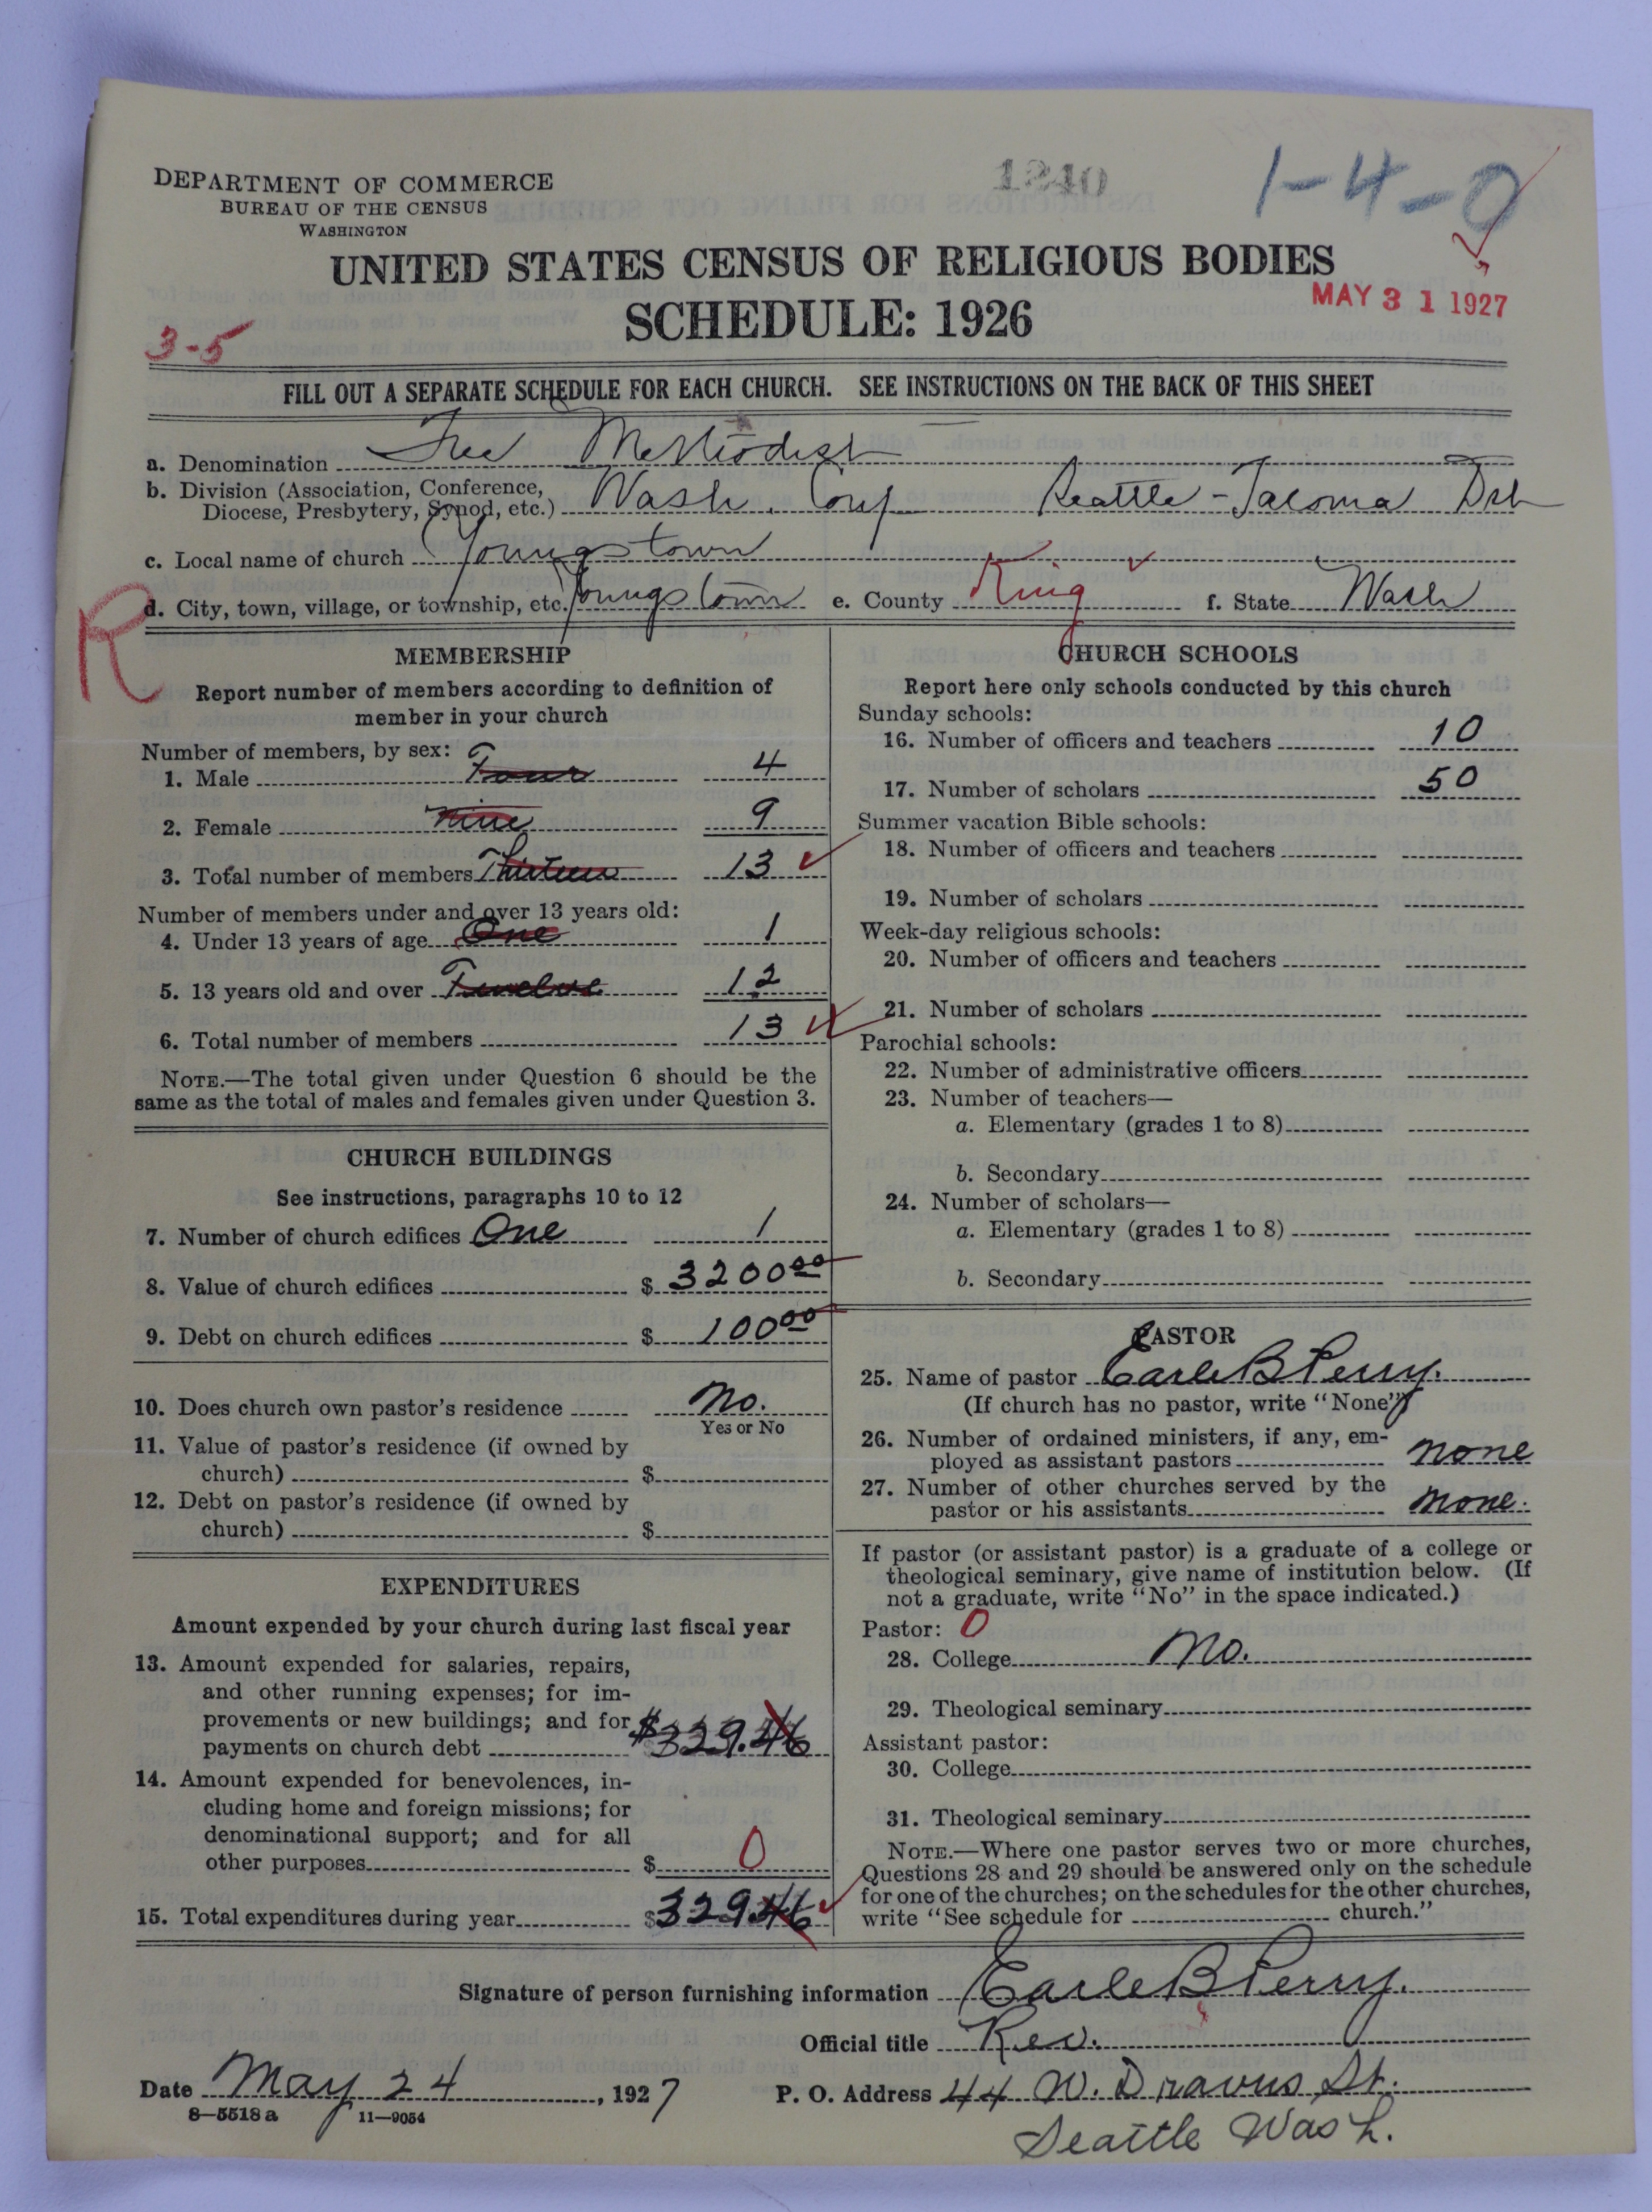 1240
1-4-0
DEPARTMENT OF COMMERCE
BUREAU OF THE CENSUS
WASHINGTON
UNITED STATES CENSUS OF RELIGIOUS BODIES
SCHEDULE: 1926
MAY 31 1927
3-5
FILL OUT A SEPARATE SCHEDULE FOR EACH CHURCH. SEE INSTRUCTIONS ON THE BACK OF THIS SHEET
a. Denomination Free Methodist
b. Division (Association, Conference,
Diocese, Presbytery, Synod, etc.) Wash. Conf Seattle-Tacoma Dst
c. Local name of church Youngstown
d. City, town, village, or township, etc. Youngstown e. County King f. State Wash
R
MEMBERSHIP
Report number of members according to definition of
member in your church
Number of members, by sex:
1. Male Four 4
2. Female nine 9
3. Total number of members Thirteen 13
Number of members under and over 13 years old:
4. Under 13 years of age One 1
5. 13 years old and over Twelve 12
6. Total number of members 13
NOTE.—The total given under Question 6 should be the
same as the total of males and females given under Question 3.
CHURCH BUILDINGS
See instructions, paragraphs 10 to 12
7. Number of church edifices One 1
8. Value of church edifices $ 3200 00
9. Debt on church edifices $ 100 00
10. Does church own pastor's residence No.
Yes or No
11. Value of pastor's residence (if owned by
church) $
12. Debt on pastor's residence (if owned by
church) $
EXPENDITURES
Amount expended by your church during last fiscal year
13. Amount expended for salaries, repairs,
and other running expenses; for im-
provements or new buildings; and for
payments on church debt $329.46
14. Amount expended for benevolences, in-
cluding home and foreign missions; for
denominational support; and for all
other purposes $ 0
15. Total expenditures during year $329.46
CHURCH SCHOOLS
Report here only schools conducted by this church
Sunday schools:
16. Number of officers and teachers 10
17. Number of scholars 50
Summer vacation Bible schools:
18. Number of officers and teachers
19. Number of scholars
Week-day religious schools:
20. Number of officers and teachers
21. Number of scholars
Parochial schools:
22. Number of administrative officers
23. Number of teachers—
a. Elementary (grades 1 to 8)
b. Secondary
24. Number of scholars—
a. Elementary (grades 1 to 8)
b. Secondary
PASTOR
25. Name of pastor Earle B Perry.
(If church has no pastor, write "None")
26. Number of ordained ministers, if any, em-
ployed as assistant pastors none
27. Number of other churches served by the
pastor or his assistants none.
If pastor (or assistant pastor) is a graduate of a college or
theological seminary, give name of institution below. (If
not a graduate, write "No" in the space indicated.)
Pastor: 0
28. College No.
29. Theological seminary
Assistant pastor:
30. College
31. Theological seminary
NOTE.—Where one pastor serves two or more churches,
Questions 28 and 29 should be answered only on the schedule
for one of the churches; on the schedules for the other churches,
write "See schedule for church."
Signature of person furnishing information Earle B Perry.
Official title Rev.
Date May 24, 1927 P. O. Address 44 W. Dravus St.
8-5518a 11-9054
Seattle Wash.